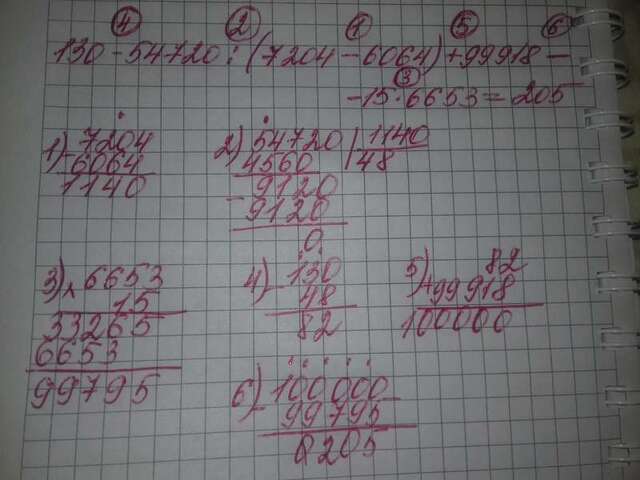 4 2 1 5 6
130 - 54720 : (7204 - 6064) + 99918 -
3
- 15 · 6653 = 205
1) 7204
- 6064
1140
2) 54720 | 1140
4560 48
- 9120
9120
0
3) x 6653
15
33265
6653
99795
4) 130
- 48
82
5) 82
+ 99918
100000
6) 100000
- 99795
0205